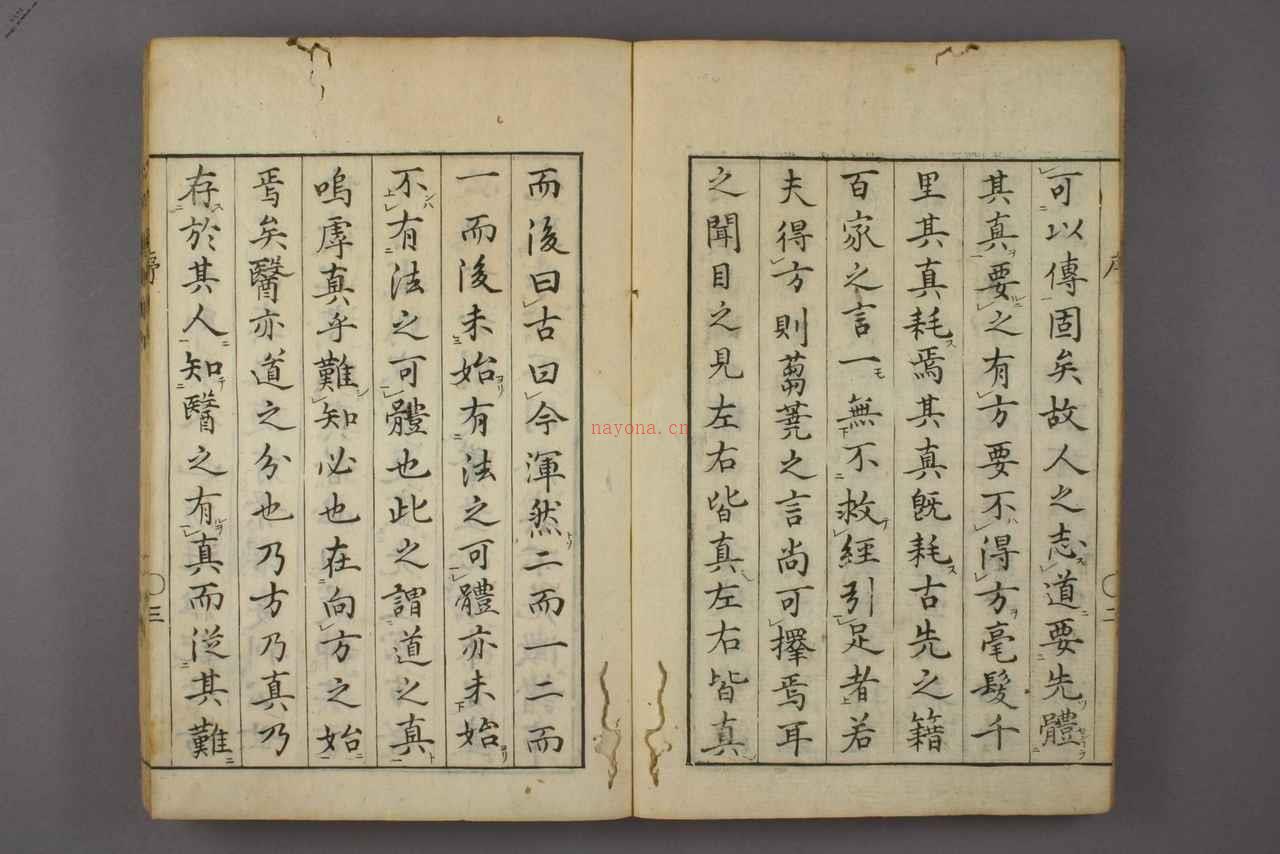 可以傳固矣故人之志道要先體
其真要之有方要不得方毫髮千
里其真耗焉其真既耗古先之籍
百家之言一無不救經引足者若
夫得方則蒭蕘之言尚可擇焉耳
之聞目之見左右皆真左右皆真
二
而後曰古曰今渾然二而一二而
一而後未始有法之可體亦未始
不有法之可體也此之謂道之真
嗚虖真乎難知必也在向方之始
焉矣醫亦道之分也乃方乃真乃
存於其人知醫之有真而從其難
序
三
nayona.cn